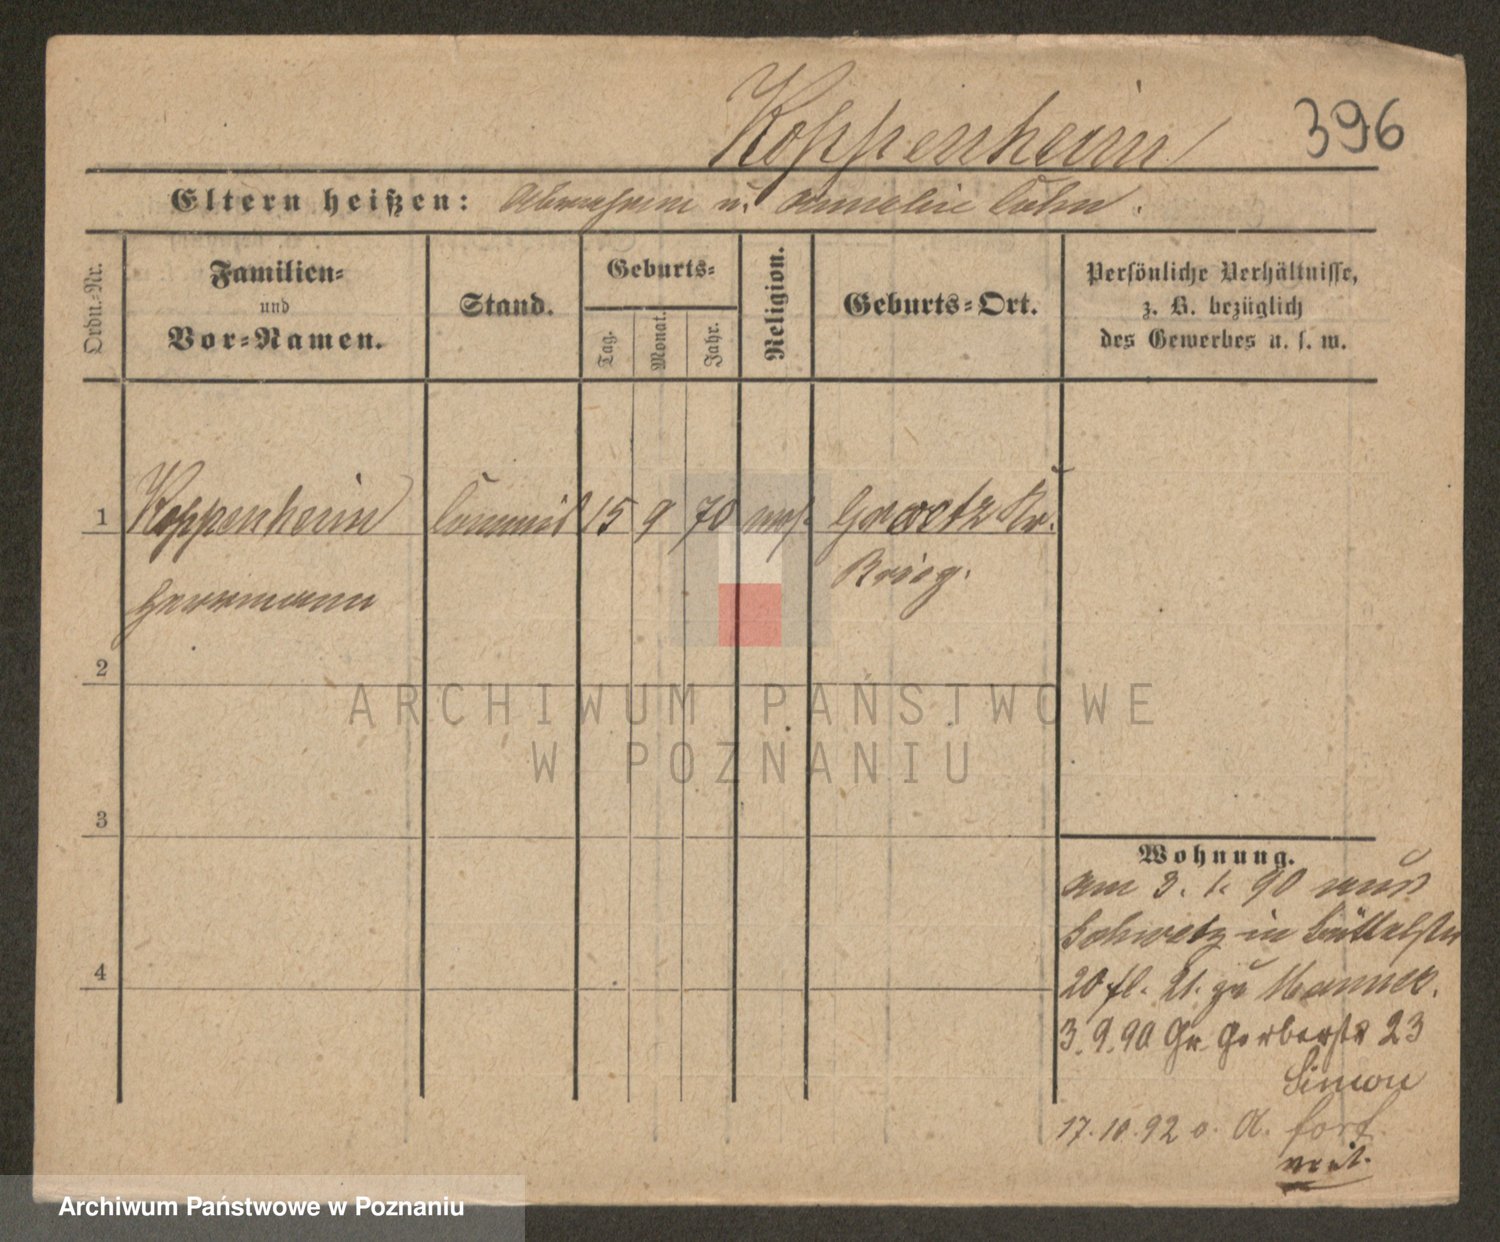 Koppenheim
396
Eltern heißen: Abraham u. Amalie Cohn.
Ordn.-Nr.
Familien-
und
Vor-Namen.
Stand.
Geburts-
Tag.
Monat.
Jahr.
Religion.
Geburts-Ort.
Persönliche Verhältnisse,
z. B. bezüglich
des Gewerbes u. s. w.
1 Koppenheim Commis 15 9 70 mos. Kr.
Brieg.
Herrmann
2
ARCHIWUM PAŃSTWOWE
W POZNANIU
3
Wohnung.
am 3. 1. 90 aus
Schwetz in
20 fl. zu
3. 9. 90 Gr. Gerberstr 23
Simon
17. 10. 92 o. A. fort
4
Archiwum Państwowe w Poznaniu